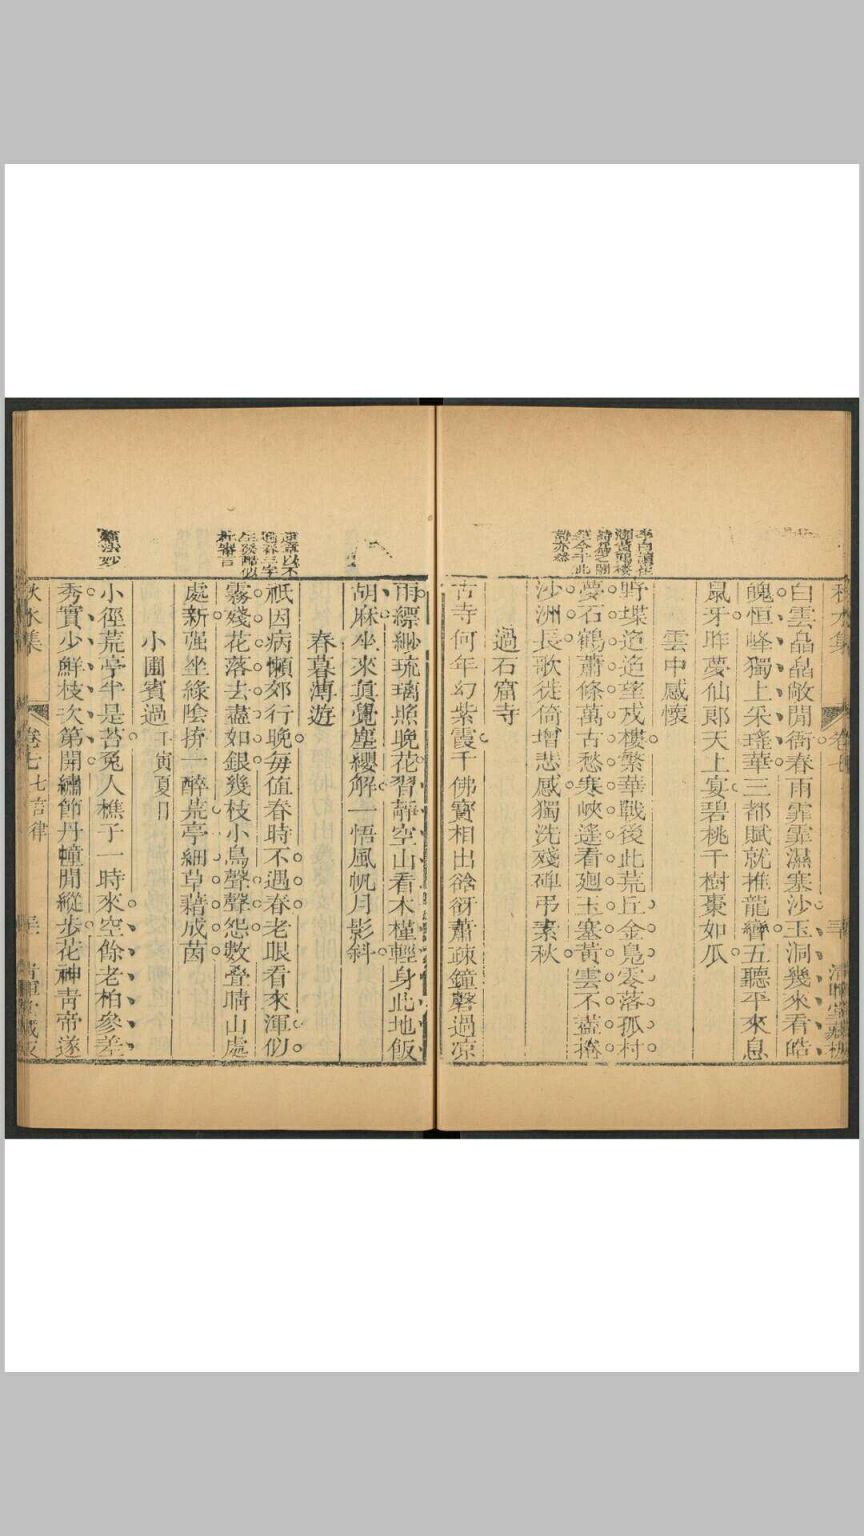 秋水集
卷七
清暉堂藏板
白雲皛皛敞閒衙春雨霏霏濕塞沙玉洞幾來看皓
魄恒峰獨上采瑤華三都賦就推龍轡五聽平來息
鼠牙昨夢仙郎天上宴碧桃千樹棗如瓜
雲中感懷
野堞迤迤望戍樓繁華戰後此荒丘金鳧零落孤村
夢石鶴蕭條萬古愁寒峽遙看廻玉塞黃雲不盡捲
沙洲長歌徙倚增悲感獨洗殘碑弔素秋
過石窟寺
古寺何年幻紫霞千佛寶相出谽谺蕭疎鐘磬過凉
雨縹緲琉璃照晚花習靜空山看木槿輕身此地飯
胡麻坐來真覺塵纓解一悟風帆月影斜
春暮薄遊
祇因病懶郊行晚每值春時不遇春老眼看來渾似
霧殘花落去盡如銀幾枝小鳥聲聲怨數疊晴山處
處新强坐緣陰拚一醉荒亭細草藉成茵
小圃賓過壬寅夏日
小徑荒亭半是苔寃人樵子一時來空餘老柏參差
秀實少鮮枝次第開繡節丹幢閒縱步花神青帝遂
秋水集
卷七
七言律
清暉堂藏板